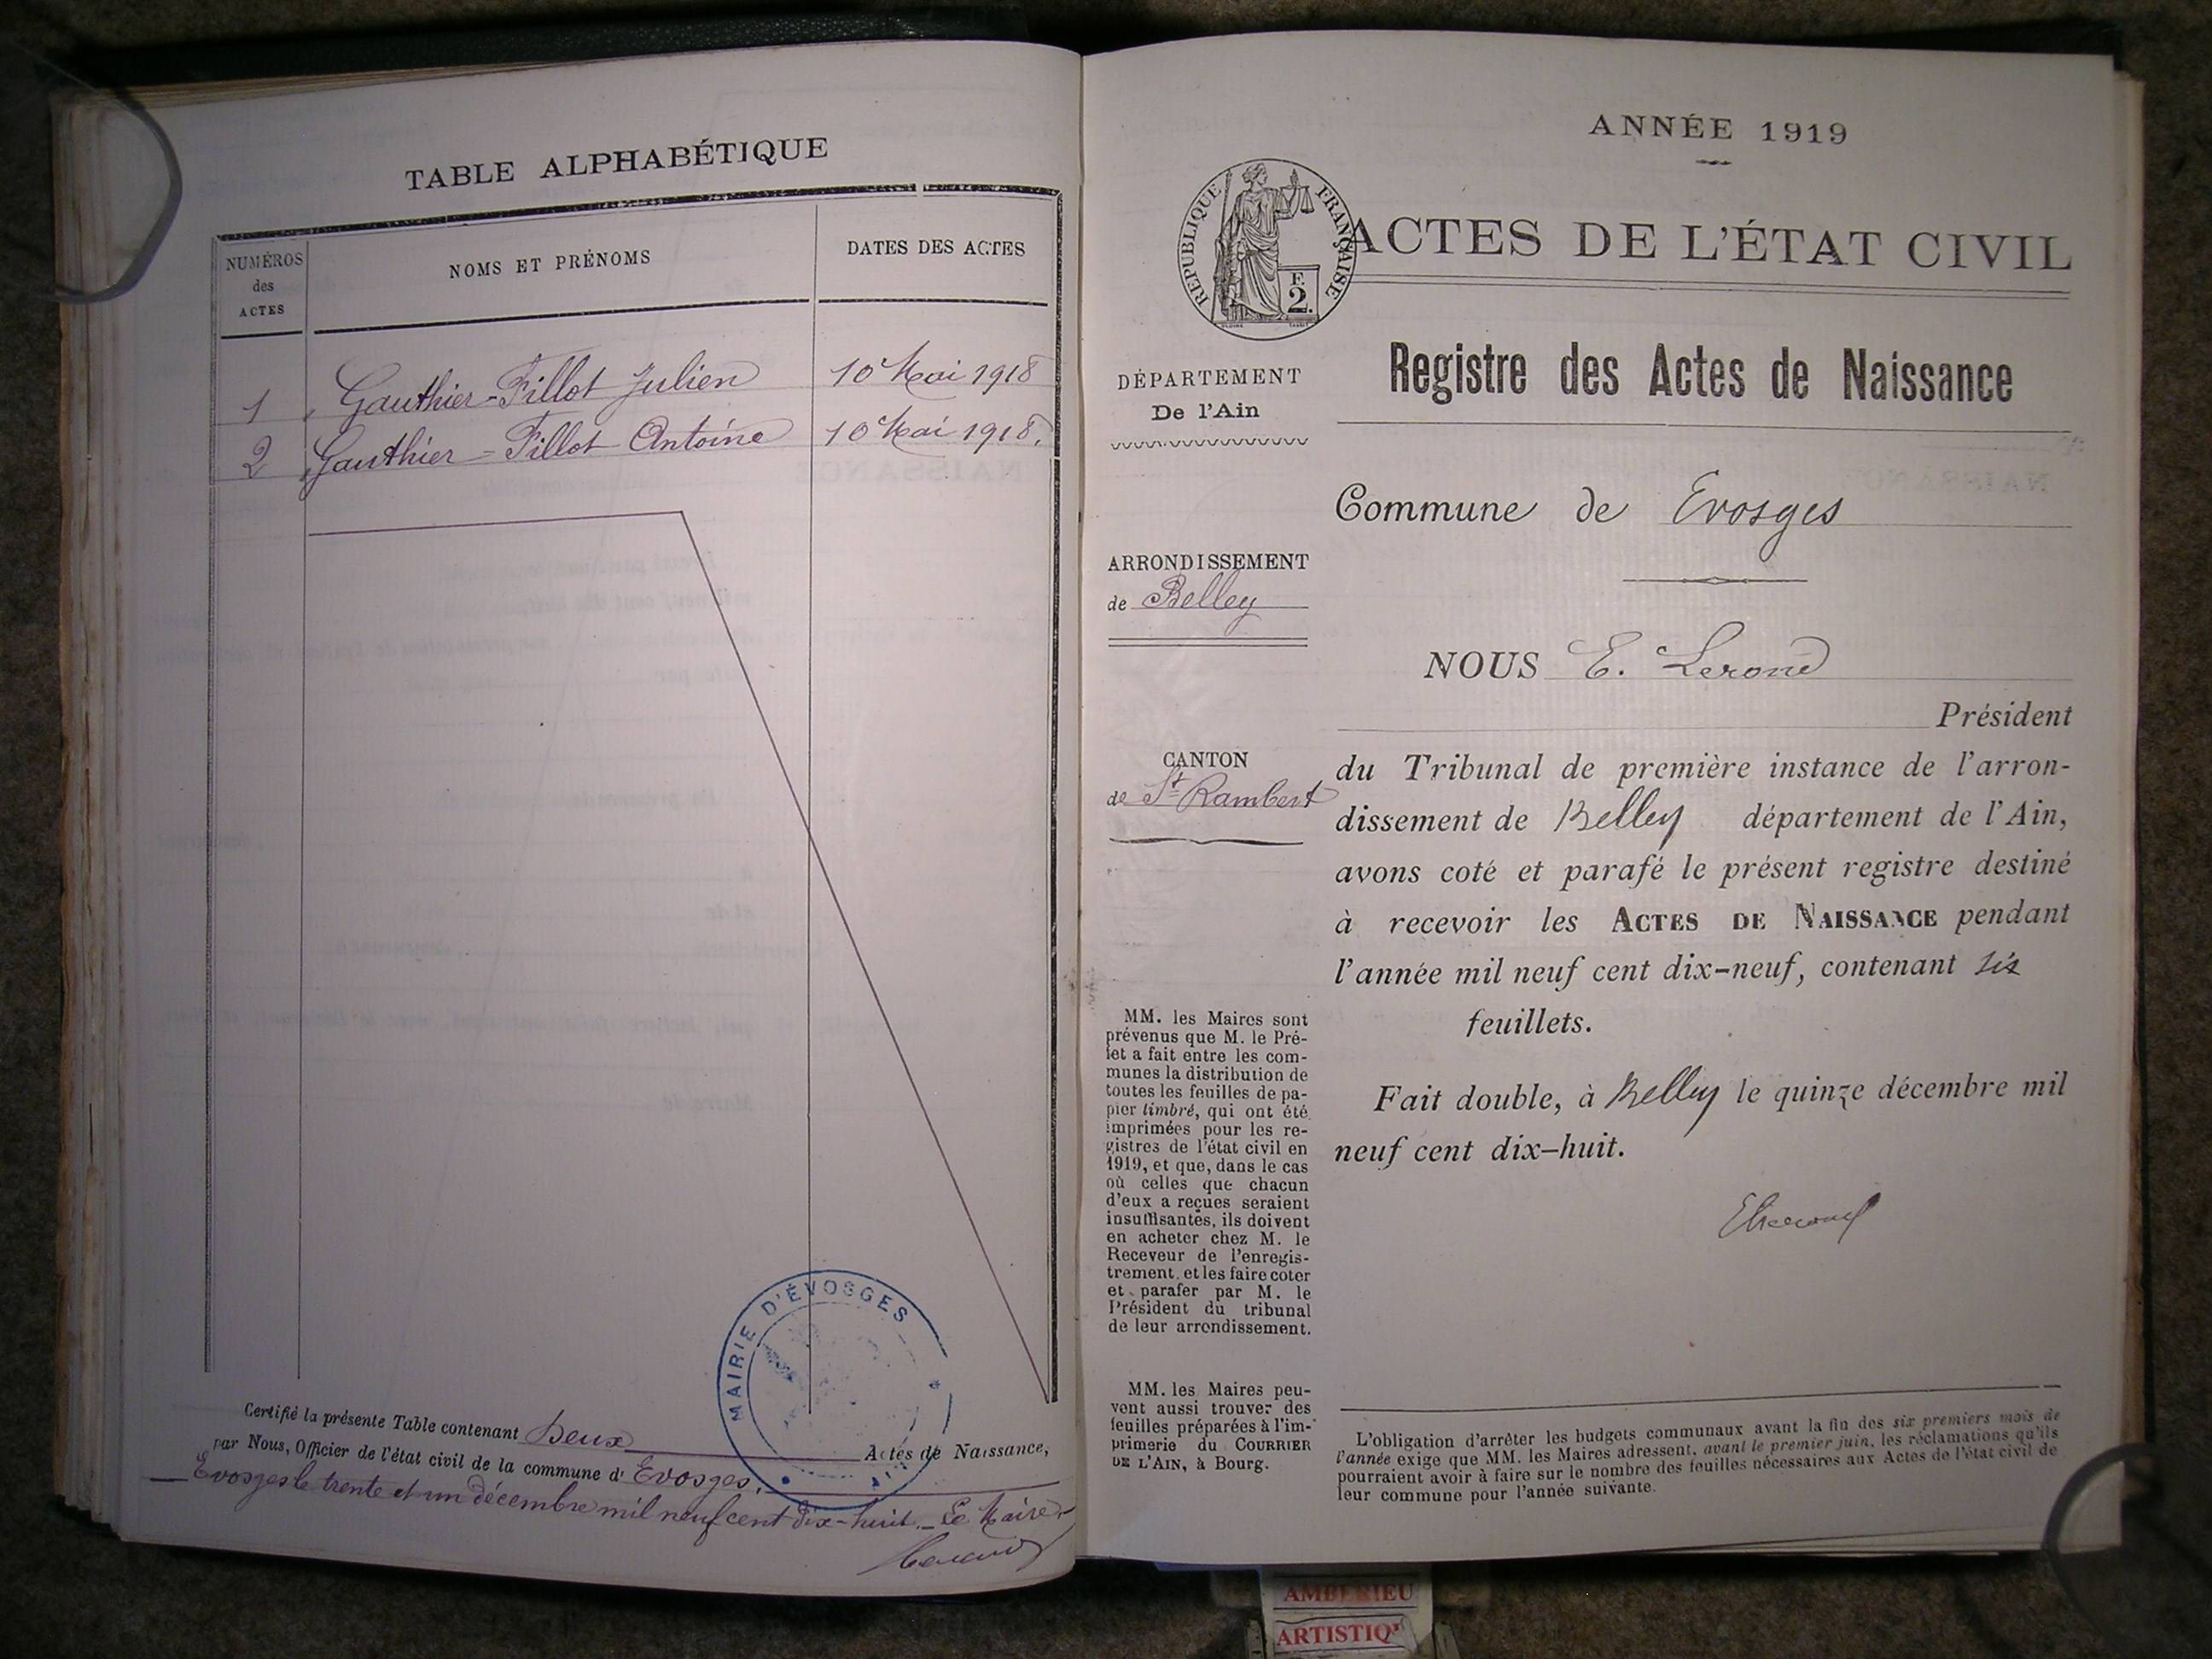 TABLE ALPHABÉTIQUE
NUMÉROS
des
ACTES
NOMS ET PRÉNOMS
DATES DES ACTES
1 Gauthier-Fillot Julien 10 Mai 1918
2 Gauthier-Fillot Antoine 10 Mai 1918.
MAIRIE D'ÉVOSGES
Certifié la présente Table contenant Deux Actes de Naissance,
par Nous, Officier de l'état civil de la commune d' Evosges.
Evosges le trente et un décembre mil neuf cent dix-huit. _ Le Maire,
ANNÉE 1919
RÉPUBLIQUE FRANÇAISE
F.
2.
ACTES DE L'ÉTAT CIVIL
Registre des Actes de Naissance
DÉPARTEMENT
De l'Ain
ARRONDISSEMENT
de Belley
CANTON
de St Rambert
MM. les Maires sont
prévenus que M. le Pré-
fet a fait entre les com-
munes la distribution de
toutes les feuilles de pa-
pier timbré, qui ont été
imprimées pour les re-
gistres de l'état civil en
1919, et que, dans le cas
où celles que chacun
d'eux a reçues seraient
insuffisantes, ils doivent
en acheter chez M. le
Receveur de l'enregis-
trement, et les faire coter
et parafer par M. le
Président du tribunal
de leur arrondissement.
MM. les Maires peu-
vent aussi trouver des
feuilles préparées à l'im-
primerie du COURRIER
DE L'AIN, à Bourg.
Commune de Evosges
NOUS E. Lerond
Président
du Tribunal de première instance de l'arron-
dissement de Belley département de l'Ain,
avons coté et parafé le présent registre destiné
à recevoir les ACTES DE NAISSANCE pendant
l'année mil neuf cent dix-neuf, contenant six
feuillets.
Fait double, à Belley le quinze décembre mil
neuf cent dix-huit.
L'obligation d'arrêter les budgets communaux avant la fin des six premiers mois de
l'année exige que MM. les Maires adressent, avant le premier juin, les réclamations qu'ils
pourraient avoir à faire sur le nombre des feuilles nécessaires aux Actes de l'état civil de
leur commune pour l'année suivante.
AMBERIEU
ARTISTIQ